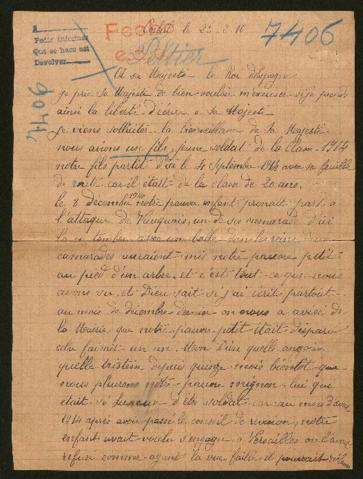 A
Pedir informes
Que se hace est
Devolver
Fecho
7406
Peltier
le 22 2 16
A sa Majesté le Roi d'Espagne
Je prie Sa Majesté de bien vouloir m'excuser si je prends
ainsi la liberté d'écrire à Sa Majesté
Je viens solliciter la bienveillance de Sa Majesté
nous avions un fils, jeune soldat de la classe 1914
notre fils partit d'ici le 4 Septembre 1914 avec sa feuille
de route car il était de la classe de 20 ans,
le 8 décembre notre pauvre enfant prenait part à
l'attaque de Vauquois, un de ses camarades d'ici
l'a vu tomber avec une balle dans les reins
camarades auraient mis notre pauvre petit
au pied d'un arbre, et c'est tout ce que nous
avons su, et Dieu sait si j'ai écrit partout
au mois de décembre dernier on nous a avisé de
la Mairie que notre pauvre petit était disparu
cela faisait un an. Mon Dieu quelle angoisse
quelle tristesse depuis quinze mois bientôt que
nous pleurons notre pauvre mignon, lui qui
était si heureux d'être soldat, car au mois d'avril
1914 après avoir passé le conseil de révision, notre
enfant avait voulu s'engager à Versailles on l'avait
refusé comme ayant la vue faible, il pouvait
7406